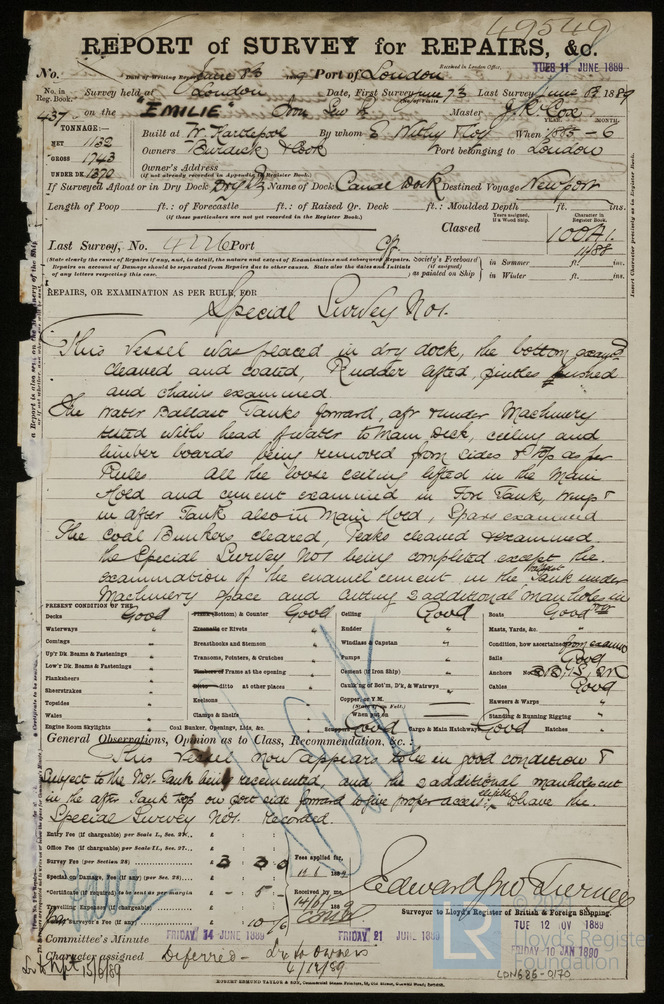 49549
REPORT of SURVEY for REPAIRS, &c.
Received in London Office, TUES 11 JUNE 1889
No. Date of Writing Report June 1889 Port of London
No. in Reg. Book. Survey held at London Date, First Survey June 73 Last Survey June 1889
437 on the "EMILIE" Master J. R. Cox
TONNAGE:— YEAR. MONTH.
NET 1132 Built at W. Hartlepool By whom E. Withy & Co When 1883-6
GROSS 1743 Owners Burdick & Cook Port belonging to London
UNDER DK 1370 Owner's Address
(if not already recorded in Appendix to Register Book.)
If Surveyed Afloat or in Dry Dock Dry Dk Name of Dock Canal Dock Destined Voyage Newport
Length of Poop ft.: of Forecastle ft.: of Raised Qr. Deck ft.: Moulded Depth ft. ins.
(if these particulars are not yet recorded in the Register Book.)
Years assigned, if a Wood Ship. Character in Register Book.
Classed 100A1.
11/88
Last Survey, No. 4226 Port Cff.
(State clearly the cause of Repairs if any, and, in detail, the nature and extent of Examinations and subsequent Repairs. Repairs on account of Damage should be separated from Repairs due to other causes. State also the dates and initials of any letters respecting this case.
Society's Freeboard (if assigned) as painted on Ship
in Summer ft. ins.
in Winter ft. ins.
REPAIRS, OR EXAMINATION AS PER RULE, FOR
Special Survey No1.
This Vessel was placed in dry dock, the bottom
cleaned and coated, Rudder lifted, pintles bushed
and chains examined
The Water Ballast Tanks forward, aft & under Machinery
tested with head of water to Main Deck, ceiling and
limber boards being removed from sides & top as per
Rules All the loose ceiling lifted in the Main
Hold and cement examined in Fore Tank,
in after Tank also in Main Hold, Spars examined
The Coal Bunkers cleared, Peaks cleaned & examined
the Special Survey No1 being completed except the
examination of the enamel cement in the Ballast Tank under
Machinery space and cutting 2 additional manholes in
PRESENT CONDITION OF THE
Decks Good
Waterways "
Comings "
Up'r Dk Beams & Fastenings "
Low'r Dk. Beams & Fastenings "
Planksheers "
Sheerstrakes "
Topsides "
Wales "
Engine Room Skylights "
Plank (Bottom) & Counter Good
Treenails or Rivets "
Breasthooks and Stemson "
Transoms, Pointers, & Crutches "
Timbers of Frame at the opening "
Ditto ditto at other places "
Keelsons "
Clamps & Shelfs "
Coal Bunker, Openings, Lids, &c. "
Ceiling Good
Rudder "
Windlass & Capstan "
Pumps "
Cement (if Iron Ship) "
Caulking of Bot'm, D'k, & Watrwys "
Copper, or Y.M.
When put on
Scuppers Good
Cargo & Main Hatchways Good
Boats Good
Masts, Yards, &c. "
Condition, how ascertained from exam
Sails Good
Anchors No.
Cables Good
Hawsers & Warps "
Standing & Running Rigging "
Hatches "
General Observations, Opinion as to Class, Recommendation, &c. :—
This Vessel now appears to be in good condition &
subject to the No1 Tank being recemented, and the 2 additional manholes cut
in the after Tank top on port side forward to give proper access, eligible to have the
Special Survey No1. Recorded.
Entry Fee (if chargeable) per Scale I., Sec. 27.. £
Office Fee (if chargeable) per Scale II., Sec. 27. £
Survey Fee (per Section 28) £ 3 3 0
Special or Damage Fee (if any) (per Sec. 28) £
*Certificate (if required) to be sent as per margin £ - 5 -
Travelling Expenses (if chargeable) £
Surveyor's Fee (if any) £ 10/6
Fees applied for,
11/6 1889
Received by me,
14/6/ 1889
Surveyor to Lloyd's Register of British & Foreign Shipping.
Committee's Minute FRIDAY 14 JUNE 1889 FRIDAY 21 JUNE 1889 TUE 12 NOV 1889
FRIDAY 10 JAN 1890
Character assigned Deferred - Lr to Owners
4/12/89
15/6/89
LR
© 2021
Lloyd's Register
Foundation
LDN686-0170
ROBERT EDMUND TAYLOR & SON,